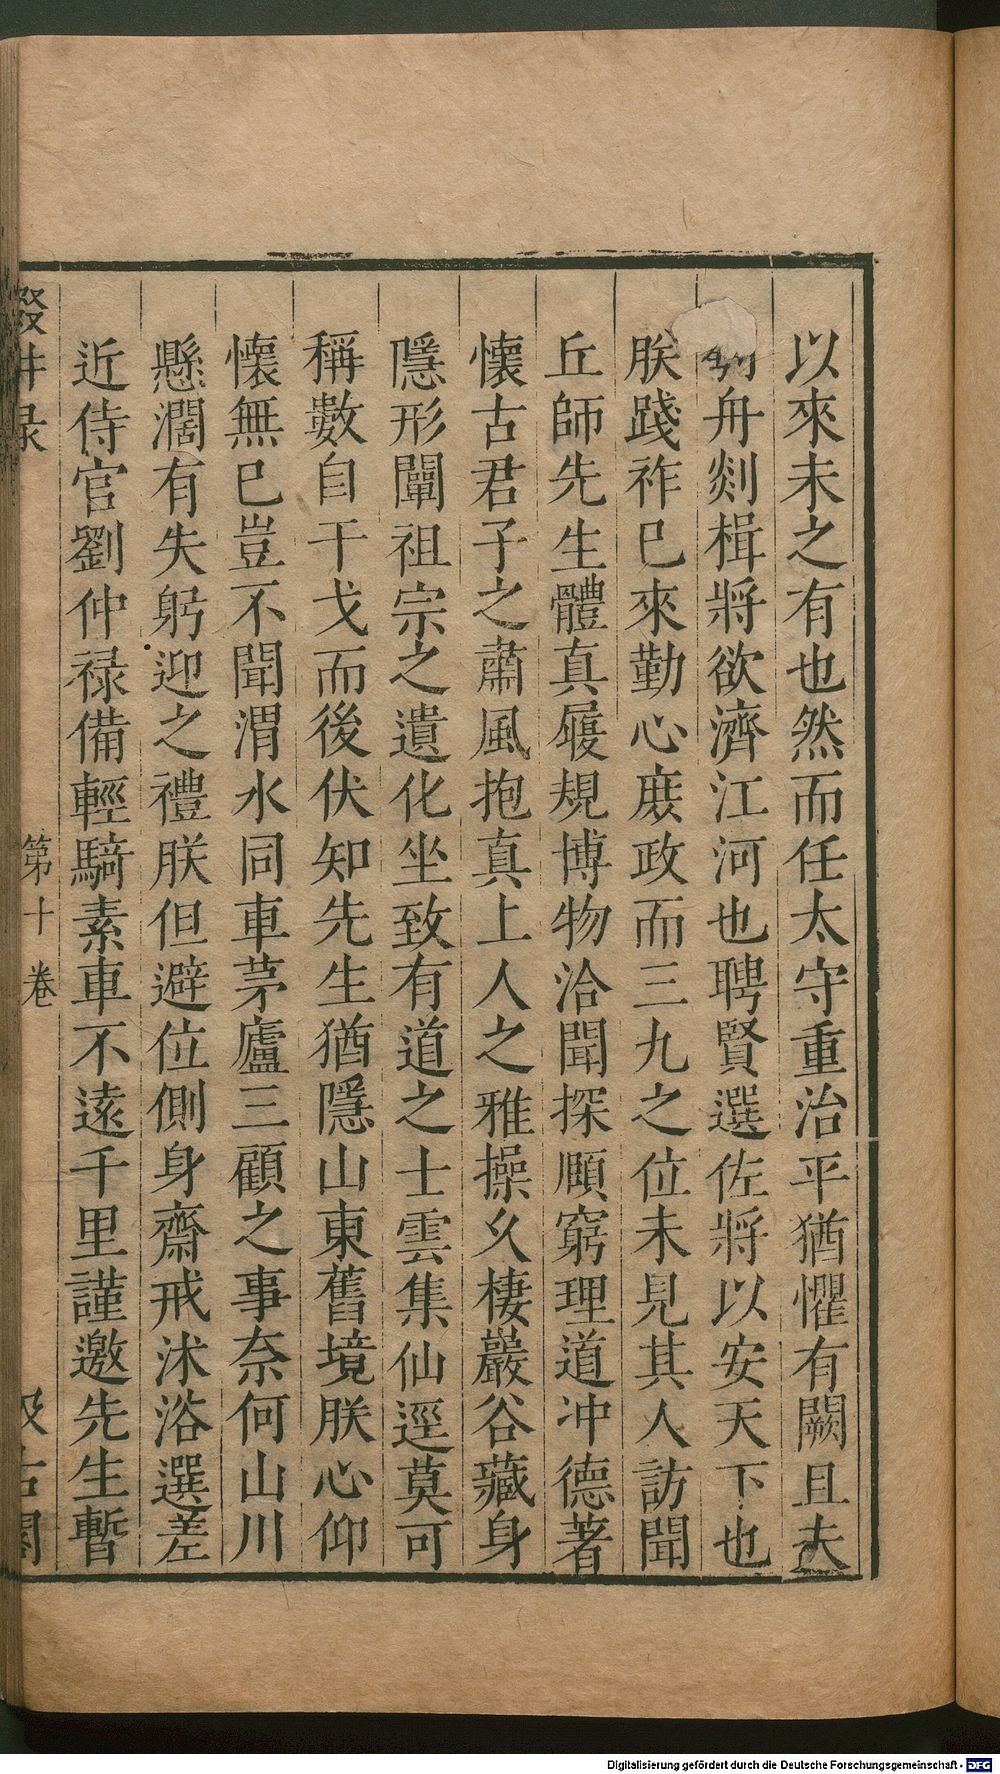 以來未之有也然而任太守重治平猶懼有闕且夫
刳舟剡楫將欲濟江河也聘賢選佐將以安天下也
朕踐祚已來勤心庶政而三九之位未見其人訪聞
丘師先生體真履規博物洽聞探賾窮理道冲德著
懷古君子之肅風抱真上人之雅操久棲巖谷藏身
隱形闡祖宗之遺化坐致有道之士雲集仙逕莫可
稱數自干戈而後伏知先生猶隱山東舊境朕心仰
懷無已豈不聞渭水同車茅廬三顧之事奈何山川
懸濶有失躬迎之禮朕但避位側身齋戒沐浴選差
近侍官劉仲祿備輕騎素車不遠千里謹邀先生暫
輟畊录
第十卷
汲古閣
Digitalisierung gefördert durch die Deutsche Forschungsgemeinschaft - DFG